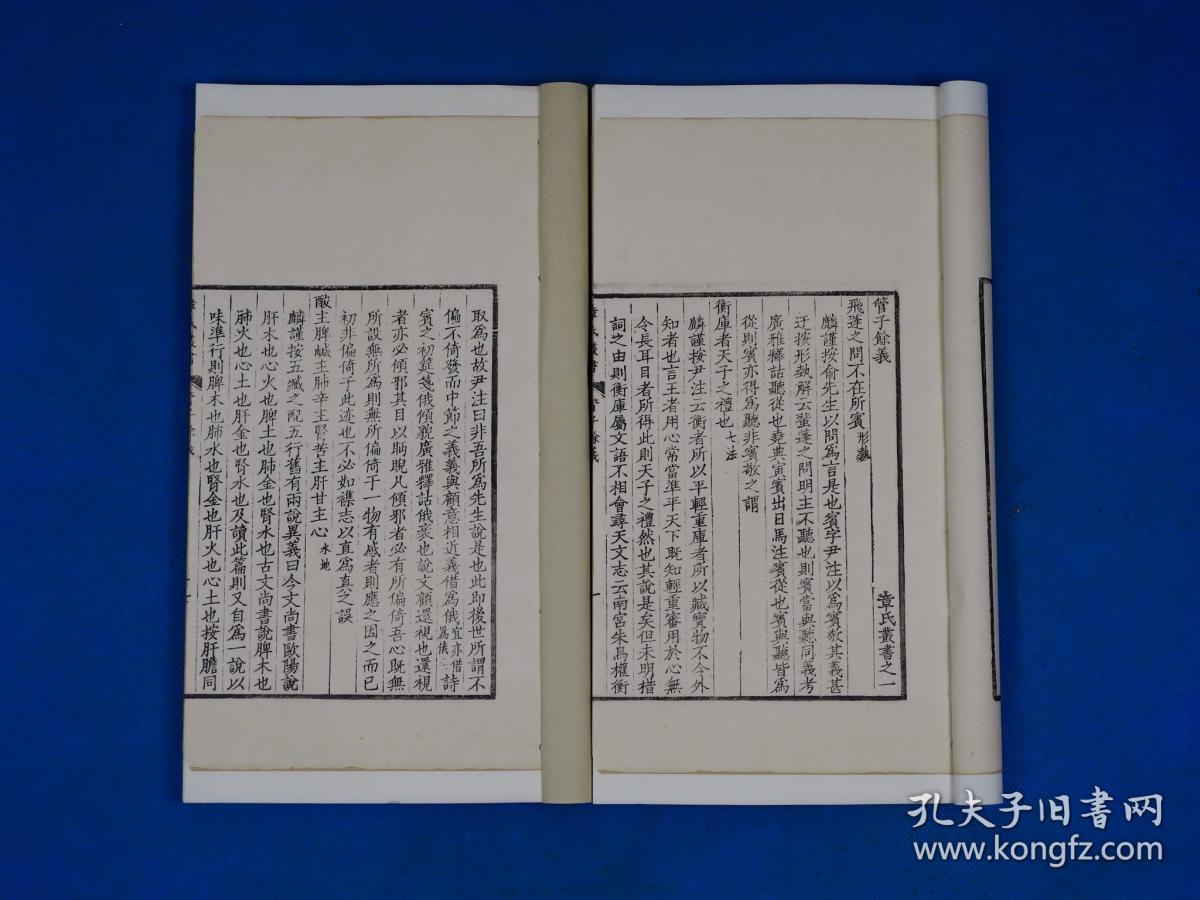 管子餘義
章氏叢書之一
飛蓬之問不在所賓 形埶
麟謹按俞先生以問爲言是也賓字尹注以爲賓敬其義甚
迂按形埶解云蜚蓬之問明主不聽也則賓當與聽同義考
廣雅釋詁聽從也堯典寅賓出日馬注賓從也賓與聽皆爲
從則賓亦得爲聽非賓敬之謂
衡庫者天子之禮也 七法
麟謹按尹注云衡者所以平輕重庫者所以藏寶物不令外
知者也言王者用心常當準平天下旣知輕重審用於心無
令長耳目者所得此則天子之禮然也其說是矣但未明措
詞之由則衡庫屬文語不相會尋天文志云南宮朱鳥權衡
章氏叢書 管子餘義 一
取爲也故尹注曰非吾所爲先生說是也此即後世所謂不
偏不倚發而中節之義義與顧意相近義借爲俄宜亦借爲俄詩
賓之初筵箋俄傾貌廣雅釋詁俄衺也說文顧還視也還視
者亦必傾邪其目以眄睨凡傾邪者必有所偏倚吾心旣無
所設無所爲則無所偏倚于一物有感者則應之因之而已
初非偏倚于此迹也不必如襍志以直爲真之誤
酸主脾鹹主肺辛主腎苦主肝甘主心 水地
麟謹按五臧之配五行舊有兩說異義曰今文尚書歐陽說
肝木也心火也脾土也肺金也腎水也古文尚書說脾木也
肺火也心土也肝金也腎水也及讀此篇則又自爲一說以
味準行則脾木也肺水也腎金也肝火也心土也按肝膽同
孔夫子旧书网
www.kongfz.com